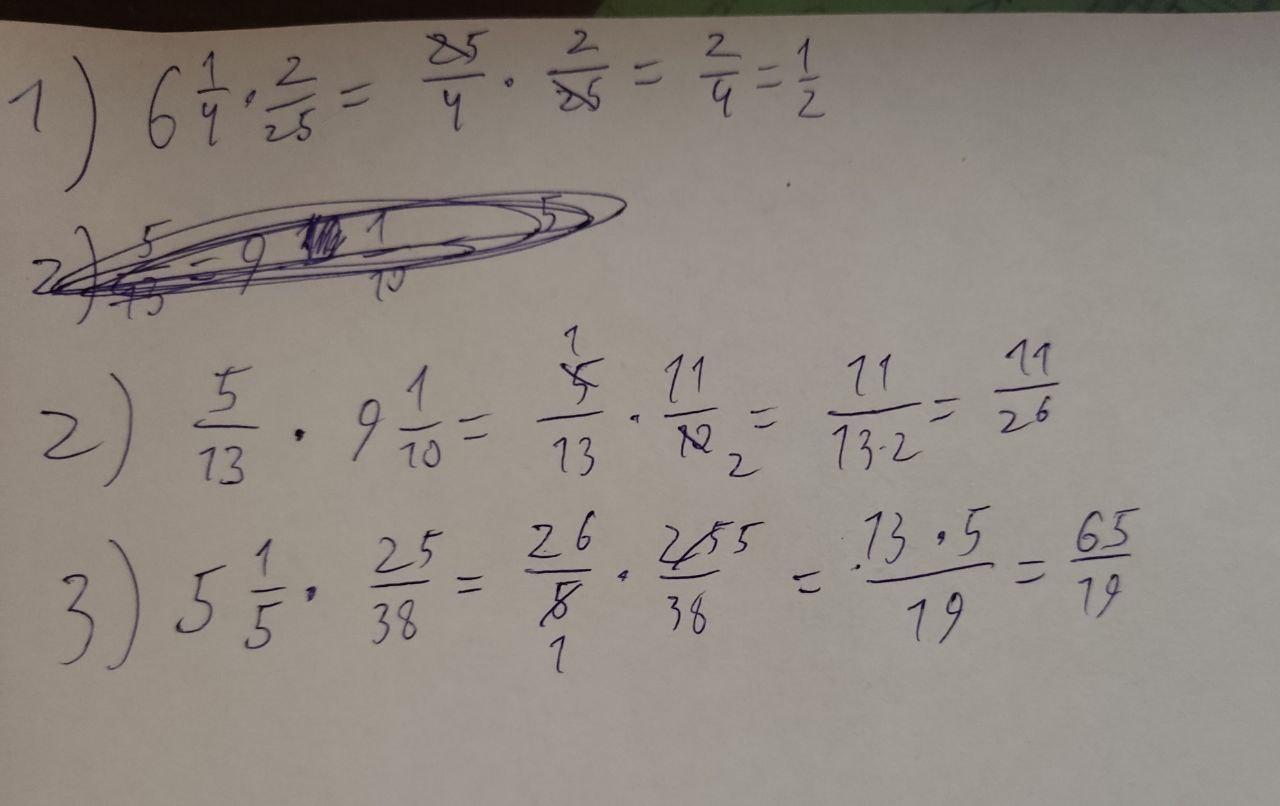 1) 6 1/4 · 2/25 = 25/4 · 2/25 = 2/4 = 1/2
2) 5/13 = 9 1/10 5
2) 5/13 · 9 1/10 = 5/13 1 · 11/10 2 = 11/13·2 = 11/26
3) 5 1/5 · 25/38 = 26/5 1 · 25/38 5 = 13·5/19 = 65/19